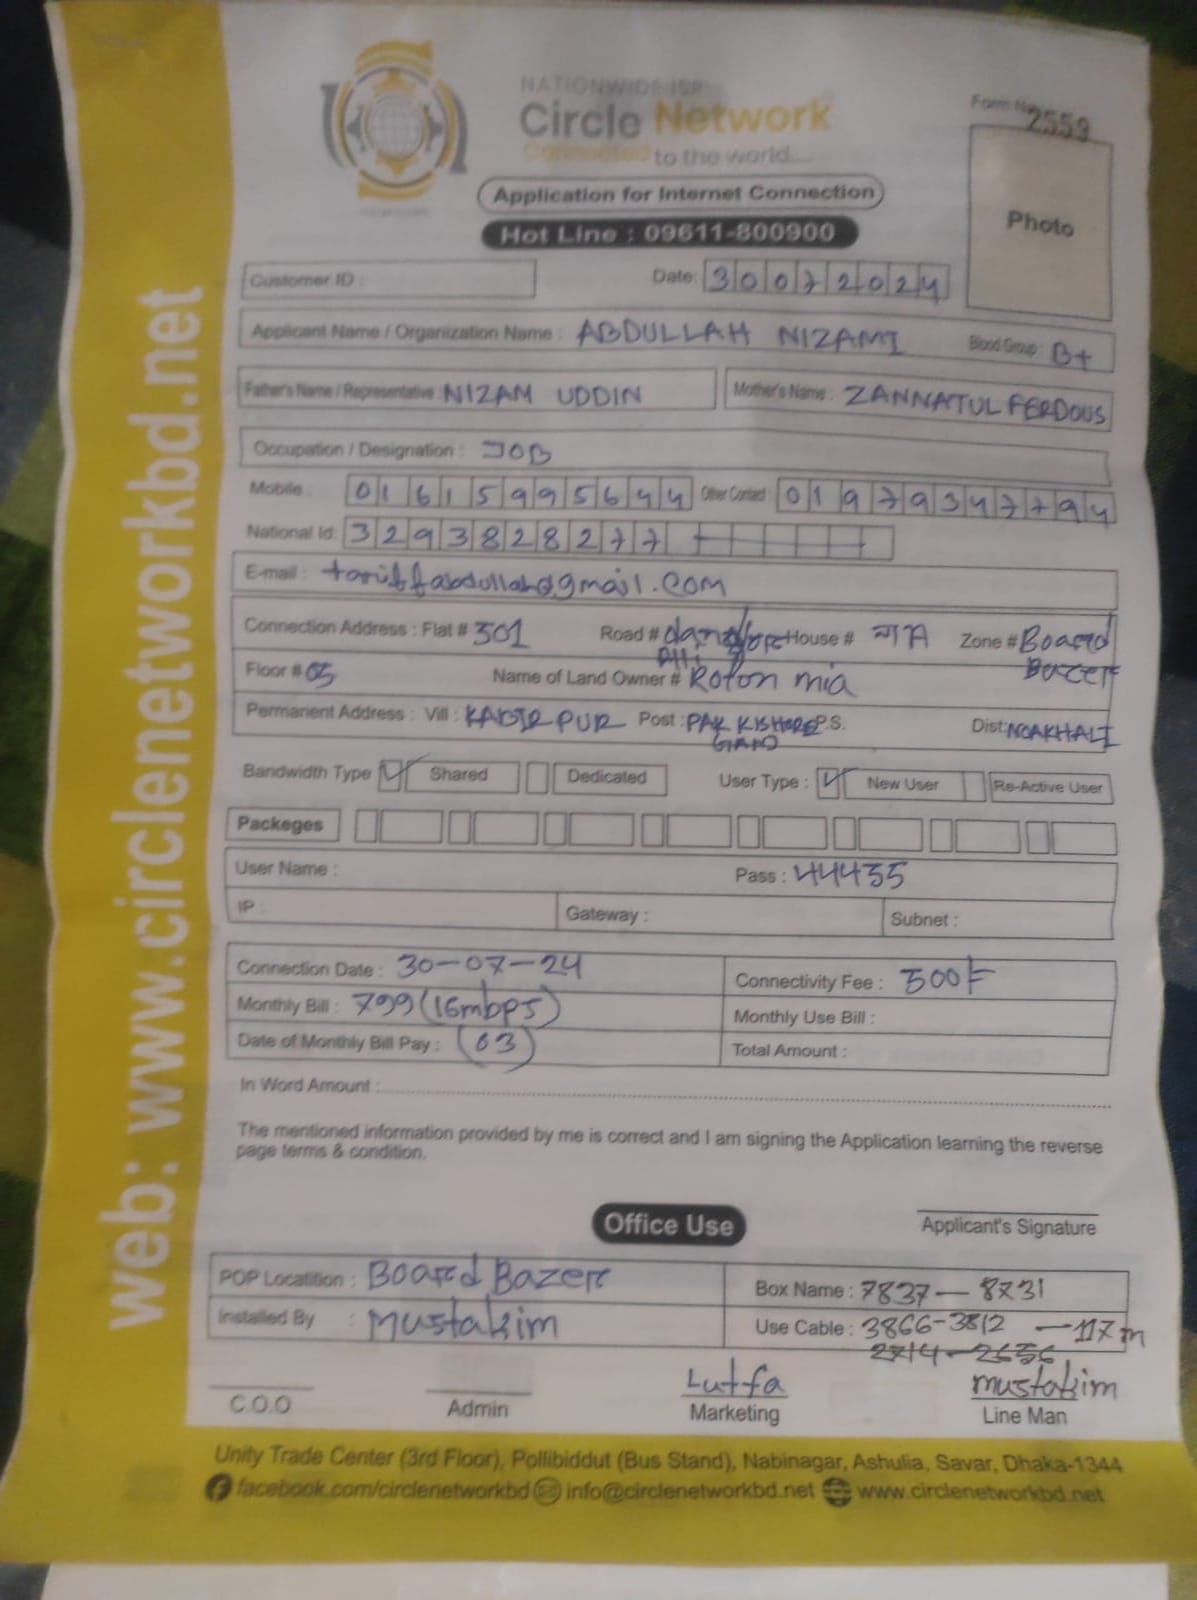 NATIONWIDE ISP
Circle Network
Connected to the world....
Form No 2559
Application for Internet Connection
Hot Line : 09611-800900
Photo
Customer ID :
Date: 30072024
Applicant Name / Organization Name : ABDULLAH NIZAMI Blood Group : B+
Father's Name / Representative : NIZAM UDDIN Mother's Name : ZANNATUL FERDOUS
Occupation / Designation : JOB
Mobile : 01615995644 Other Contact 01979347794
National Id: 3293828277
E-mail : @gmail.com
Connection Address : Flat # 501 Road # House # Zone # Board
Bazer
Floor # 05 Name of Land Owner # Roton mia
Permanent Address : Vill : KABIR PUR Post : PAK KISHORE P.S. Dist: NOAKHALI
Bandwidth Type Shared Dedicated User Type : New User Re-Active User
Packeges
User Name : Pass : 44455
IP : Gateway : Subnet :
Connection Date : 30-07-24 Connectivity Fee : 500/=
Monthly Bill : 799 (16mbps) Monthly Use Bill :
Date of Monthly Bill Pay : (03) Total Amount :
In Word Amount :
The mentioned information provided by me is correct and I am signing the Application learning the reverse
page terms & condition.
Office Use
Applicant's Signature
POP Locatition : Board Bazer Box Name : 7837 - 8731
Installed By : Mustakim Use Cable : 3866-3812 - 117m
Lutfa mustakim
C.O.O Admin Marketing Line Man
Unity Trade Center (3rd Floor), Pollibiddut (Bus Stand), Nabinagar, Ashulia, Savar, Dhaka-1344
facebook.com/circlenetworkbd info@circlenetworkbd.net www.circlenetworkbd.net
web: www.circlenetworkbd.net